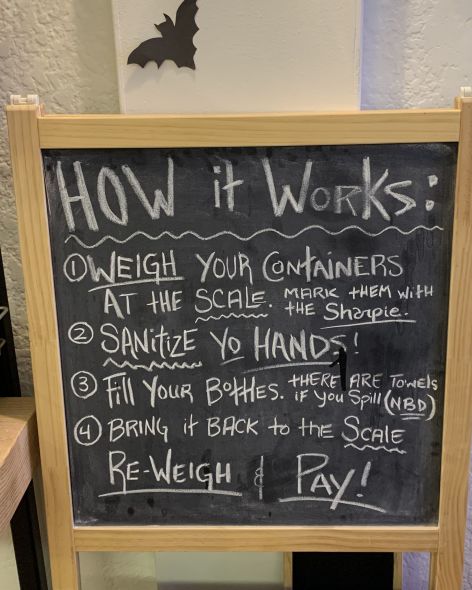 HOW it WORKS:
① WEIGH YOUR CONTAINERS
AT the SCALE. MARK them with
the Sharpie.
② SANITIZE YO HANDS!
③ Fill YOUR BOttlES. tHERE ARE TOWELS
if you Spill (NBD)
④ BRING it BACK to the SCALE
RE-WEIGH & PAY!